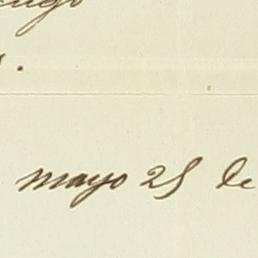 mayo 25 de